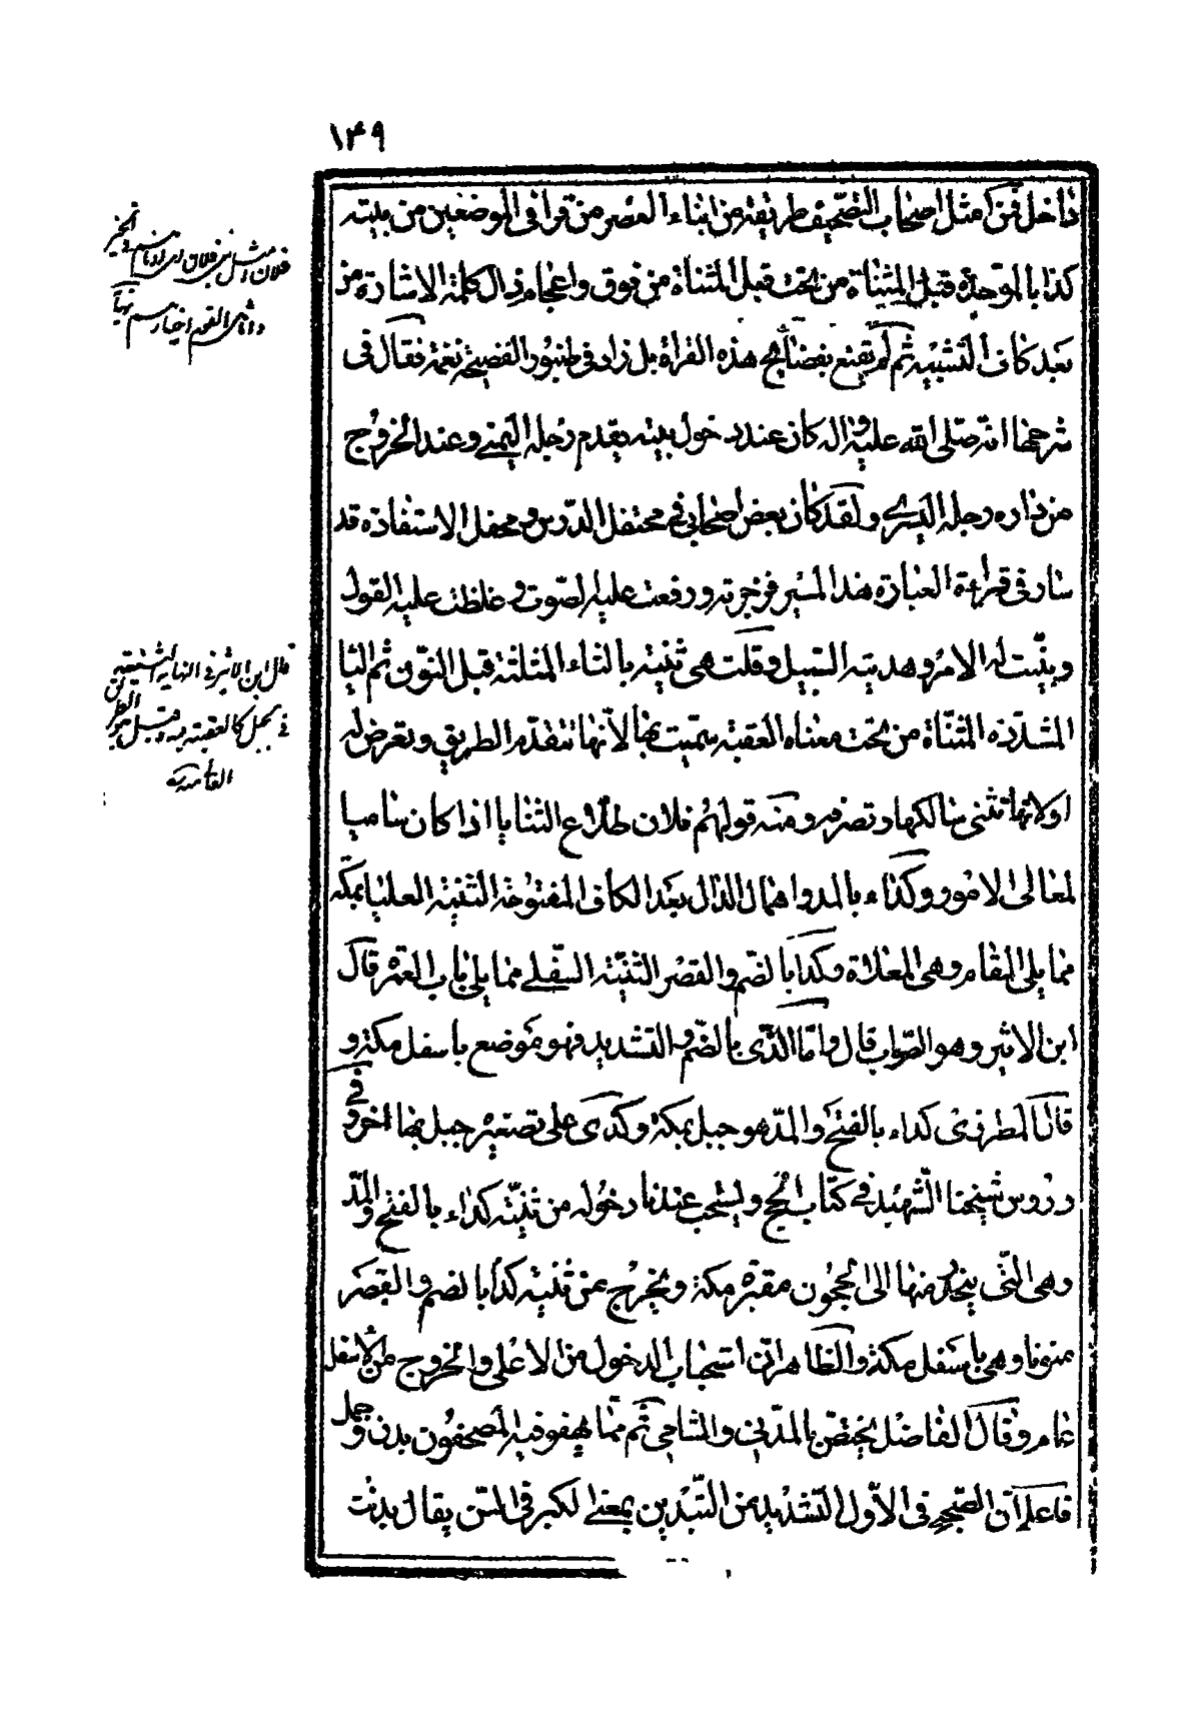 ١٤٩
داخل فمن أمثل اصحاب التصحيف طريقة من ابناء العصر من قرأ في الموضعين من بيته
كذا بالموحدة قبل المثناة من تحت قبل المثناة من فوق واعجام ذال كلمة الاشارة من
بعد كاف التشبيه ثم لم يقنع بفضائح هذه القراءة بل زاد في طنبور الفضيحة نغمة فقال في
شرحها انه صلى الله عليه واله كان عند دخول بيته يقدم رجله اليمنى وعند الخروج
من داره رجله اليسرى ولقد كان بعض اصحابي في محتفل الدرس ومحفل الاستفادة قد
سار في قراءة العبارة هذا المسير فزجرته ورفعت عليه الصوت وغلظت عليه القول
وبينت له الامر وهديته السبيل وقلت هي ثنية بالثاء المثلثة قبل النون ثم اليا
المشددة المثناة من تحت معناه العقبة سميت بها لانها تتقدم الطريق وتعرض له
اولانها تثنى سالكها وتصرفه ومنه قولهم فلان طلاع الثنايا اذا كان ساميا
لمعالى الامور وكداء بالمد واهمال الدال بعد الكاف المفتوحة الثنية العليا بمكة
مما يلي المقابر وهي المعلاة وكدا بالضم والقصر الثنية السفلى مما يلي باب العمرة قال
ابن الاثير وهو الصواب قال واما الذى بالضم والتشديد فهو موضع باسفل مكة و
قال المطرزى كداء بالفتح والمد هو جبل بمكة وكدى على تصغيره جبل بها اخر وفي
دروس شيخنا الشهيد في كتاب الحج ويستحب عندنا دخوله من ثنية كداء بالفتح والمد
وهي التى ينحدر منها الى الحجون مقبرة مكة ويخرج من ثنية كدا بالضم والقصر
منونا وهي باسفل مكة والظاهر ان استحباب الدخول من الاعلى والخروج من الاسفل
عام وقال الفاضل يختص بالمدني والشامي ثم مما يهفو فيه المصحفون بدن وحمل
فاعلم ان الصحيح في الاول التشديد من التبدين بمعنى الكبر في السن يقال بدنت
قال ابن الاثير في النهاية الثنية
في الجبل كالعقبة فيه وقيل هو الطريق